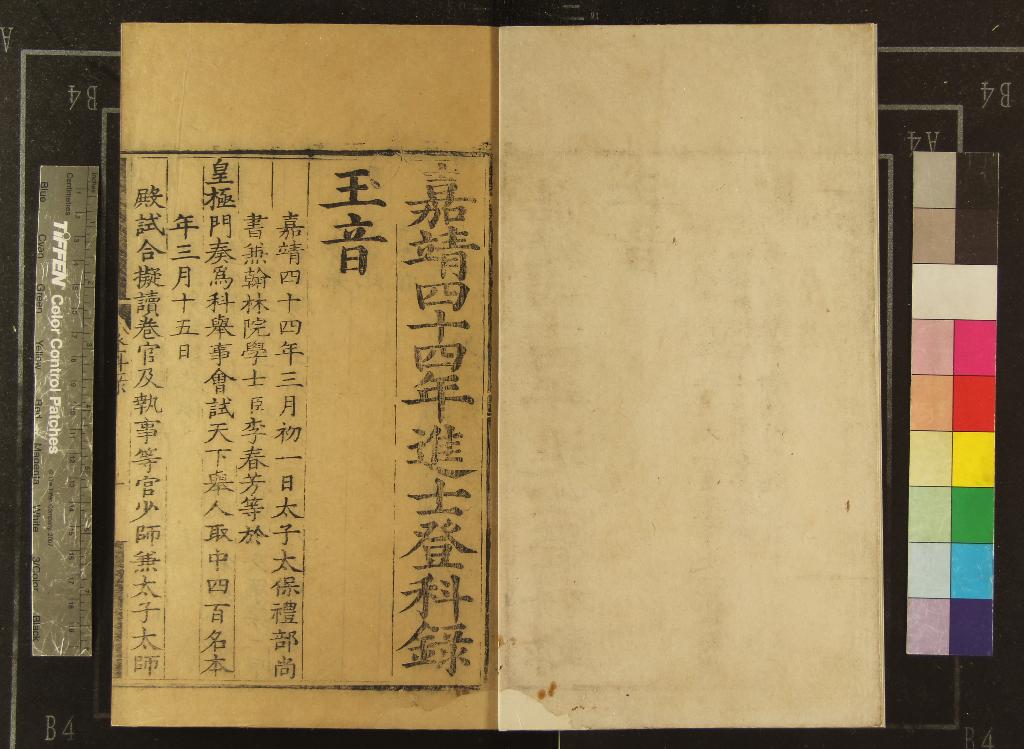 嘉靖四十四年進士登科錄
玉音
嘉靖四十四年三月初一日太子太保禮部尚
書兼翰林院學士臣李春芳等於
皇極門奏爲科舉事會試天下舉人取中四百名本
年三月十五日
殿試合擬讀卷官及執事等官少師兼太子太師
TIFFEN Color Control Patches
Centimetres
Inches
Blue
Cyan
Green
Yellow
Red
Magenta
White
3/Color
Black
B4
A4
B4
B4
B4
A